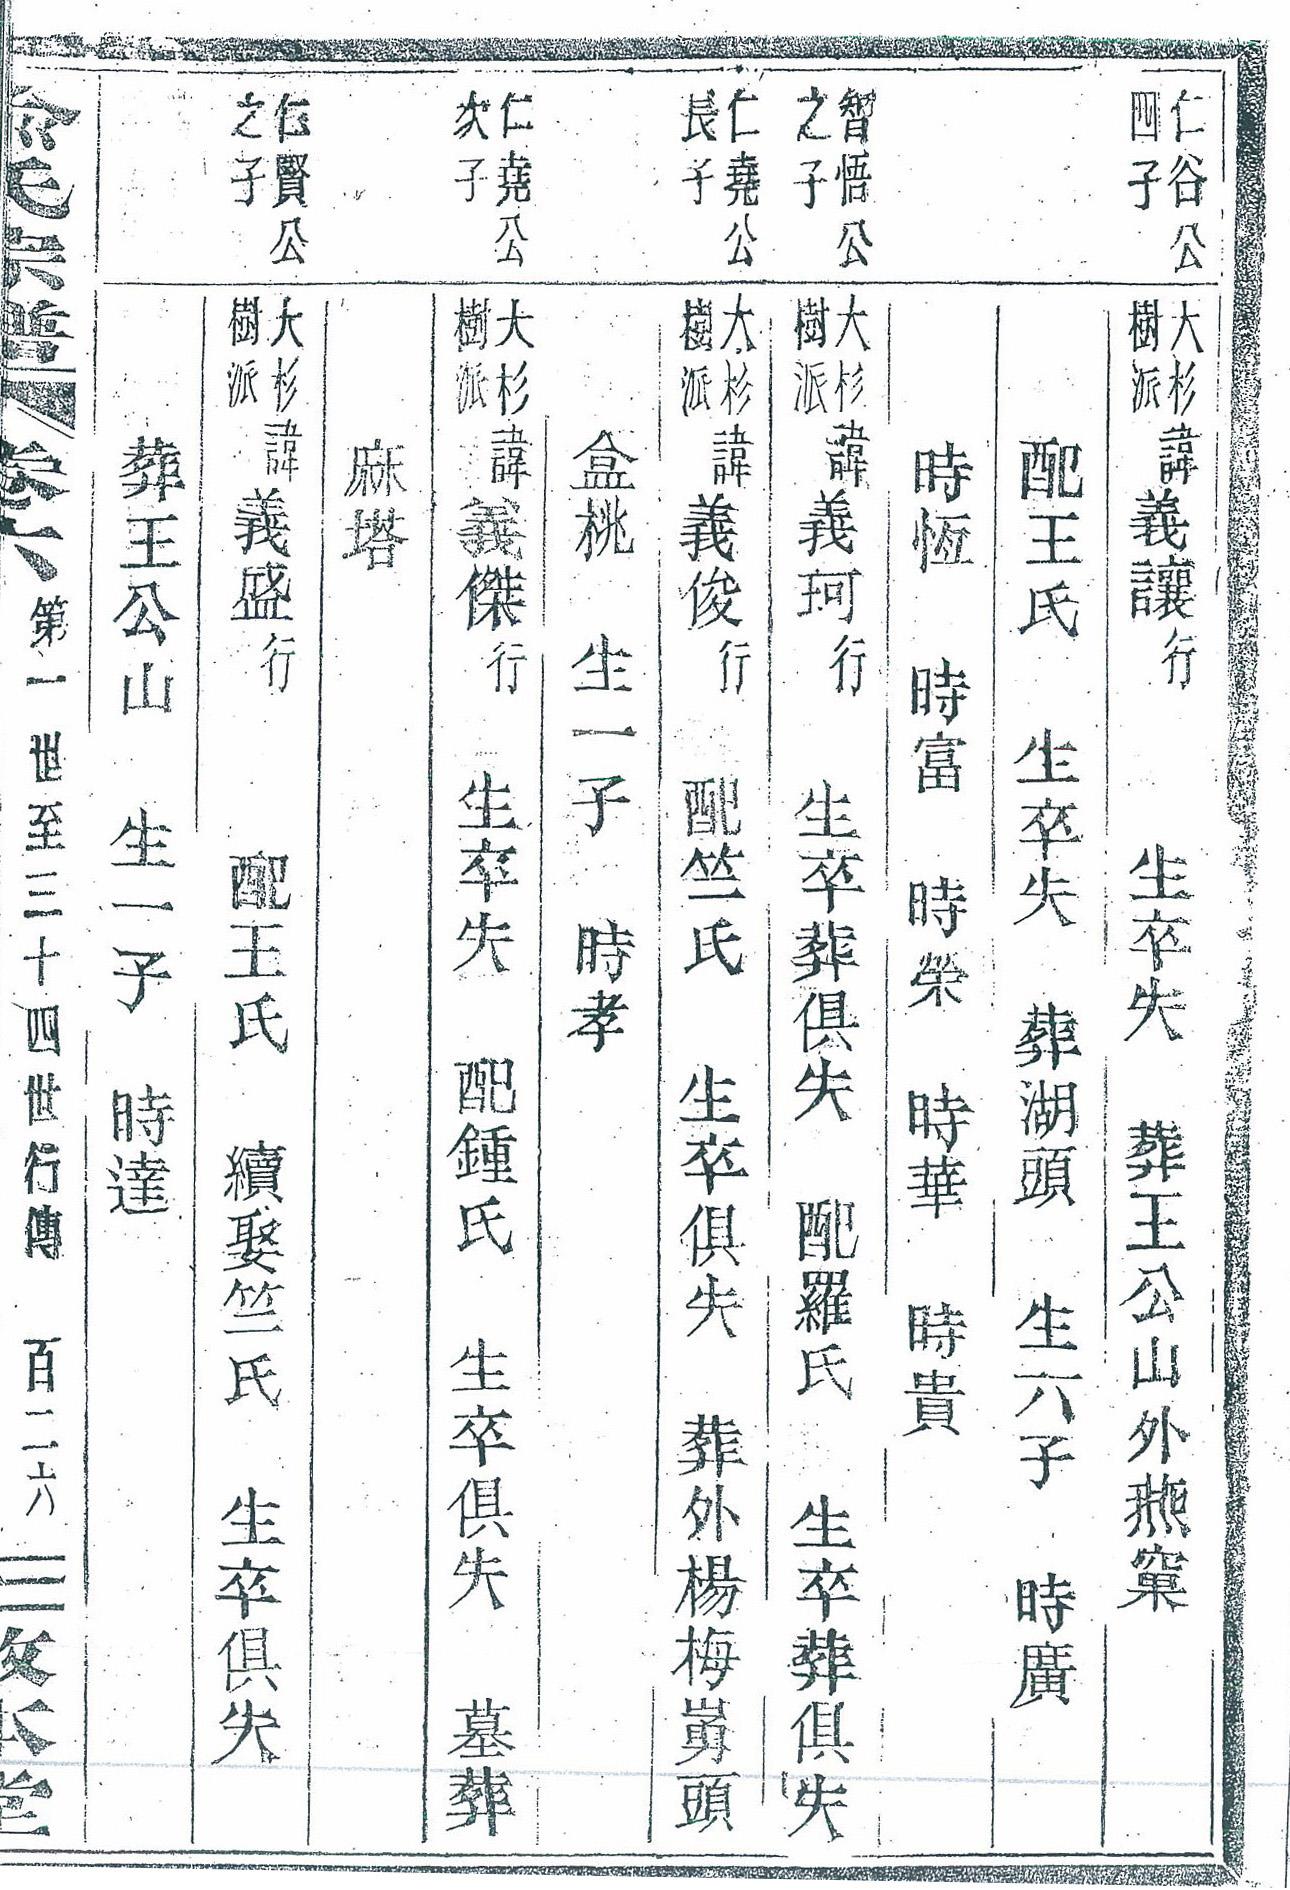 仁谷公
四子
大杉
樹派
諱義讓行 生卒失 葬王公山外燕窠
配王氏 生卒失 葬湖頭 生六子 時廣
時恆 時富 時榮 時華 時貴
智悟公
之子
大杉
樹派
諱義珂行 生卒葬俱失 配羅氏 生卒葬俱失
仁堯公
長子
大杉
樹派
諱義俊行 配竺氏 生卒俱失 葬外楊梅嶌頭
盒桃 生一子 時孝
仁堯公
次子
大杉
樹派
諱義傑行 生卒失 配鍾氏 生卒俱失 墓葬
麻塔
仁賢公
之子
大杉
樹派
諱義盛行 配王氏 續娶竺氏 生卒俱失
葬王公山 生一子 時達
氏宗譜 卷六 第一世至三十四世行傳 百二六 敦本堂